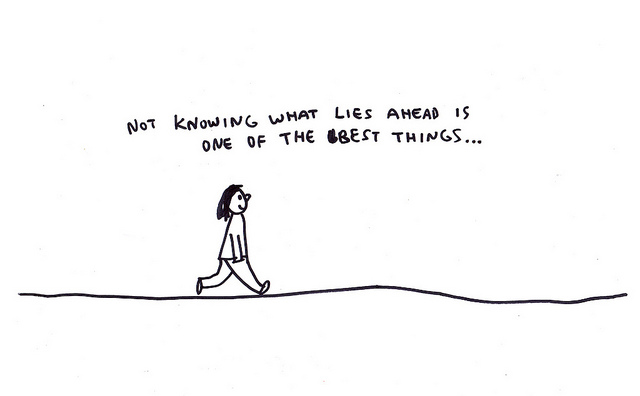 NOT KNOWING WHAT LIES AHEAD IS
ONE OF THE BEST THINGS...